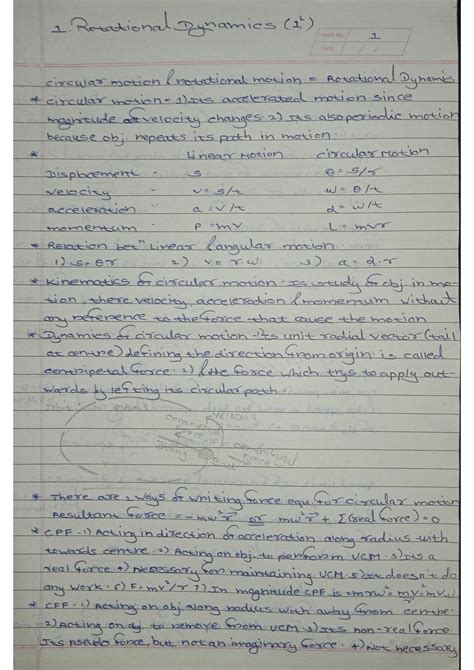 1. Rotational Dynamics (1²)
PAGE No. 1
DATE / /
circular motion & rotational motion = Rotational Dynamic
* circular motion - 1) Its accelerated motion since
magnitude of velocity changes 2) Its also periodic motion
because obj. repeats its path in motion.
* Linear Motion circular Motion
Displacement - s θ = s/r
velocity - v = s/t w = θ/t
acceleration - a = v/t α = w/t
momentum - P = mv L = mvr
* Relation betⁿ Linear & angular motion.
1) s = θr 2) v = r.w 3) a = α.r
* Kinematics of circular motion - Is study of obj. in mo-
tion, there velocity, acceleration & momentum without
any reference to the force that cause the motion
* Dynamics of circular motion - Its unit radial vector (tail
at centre) defining the direction from origin is called
centripetal force. 2) & the force which trys to apply out-
wards by lefting its circular path.
velocity
centripetal force
centrifugal force
* There are 2 ways of writing force equ. for circular motion
Resultant force = -mw²r or mw²r + Σ(real force) = 0
* CPF - 1) Acting in direction of acceleration along radius with
towards centre. 2) Acting on obj. to perform UCM. 3) Its a
real force 4) Necessary for maintaining UCM. 5) It doesn't do
any work. 6) F = mv²/r 7) In magnitude CPF is = mrw² = mv²/r = mvw
* CFF - 1) Acting on obj. along radius with away from centre.
2) Acting on obj to remove from UCM 3) Its non-real force
Its pseudo force, but not an imaginary force. 4) Not necessary